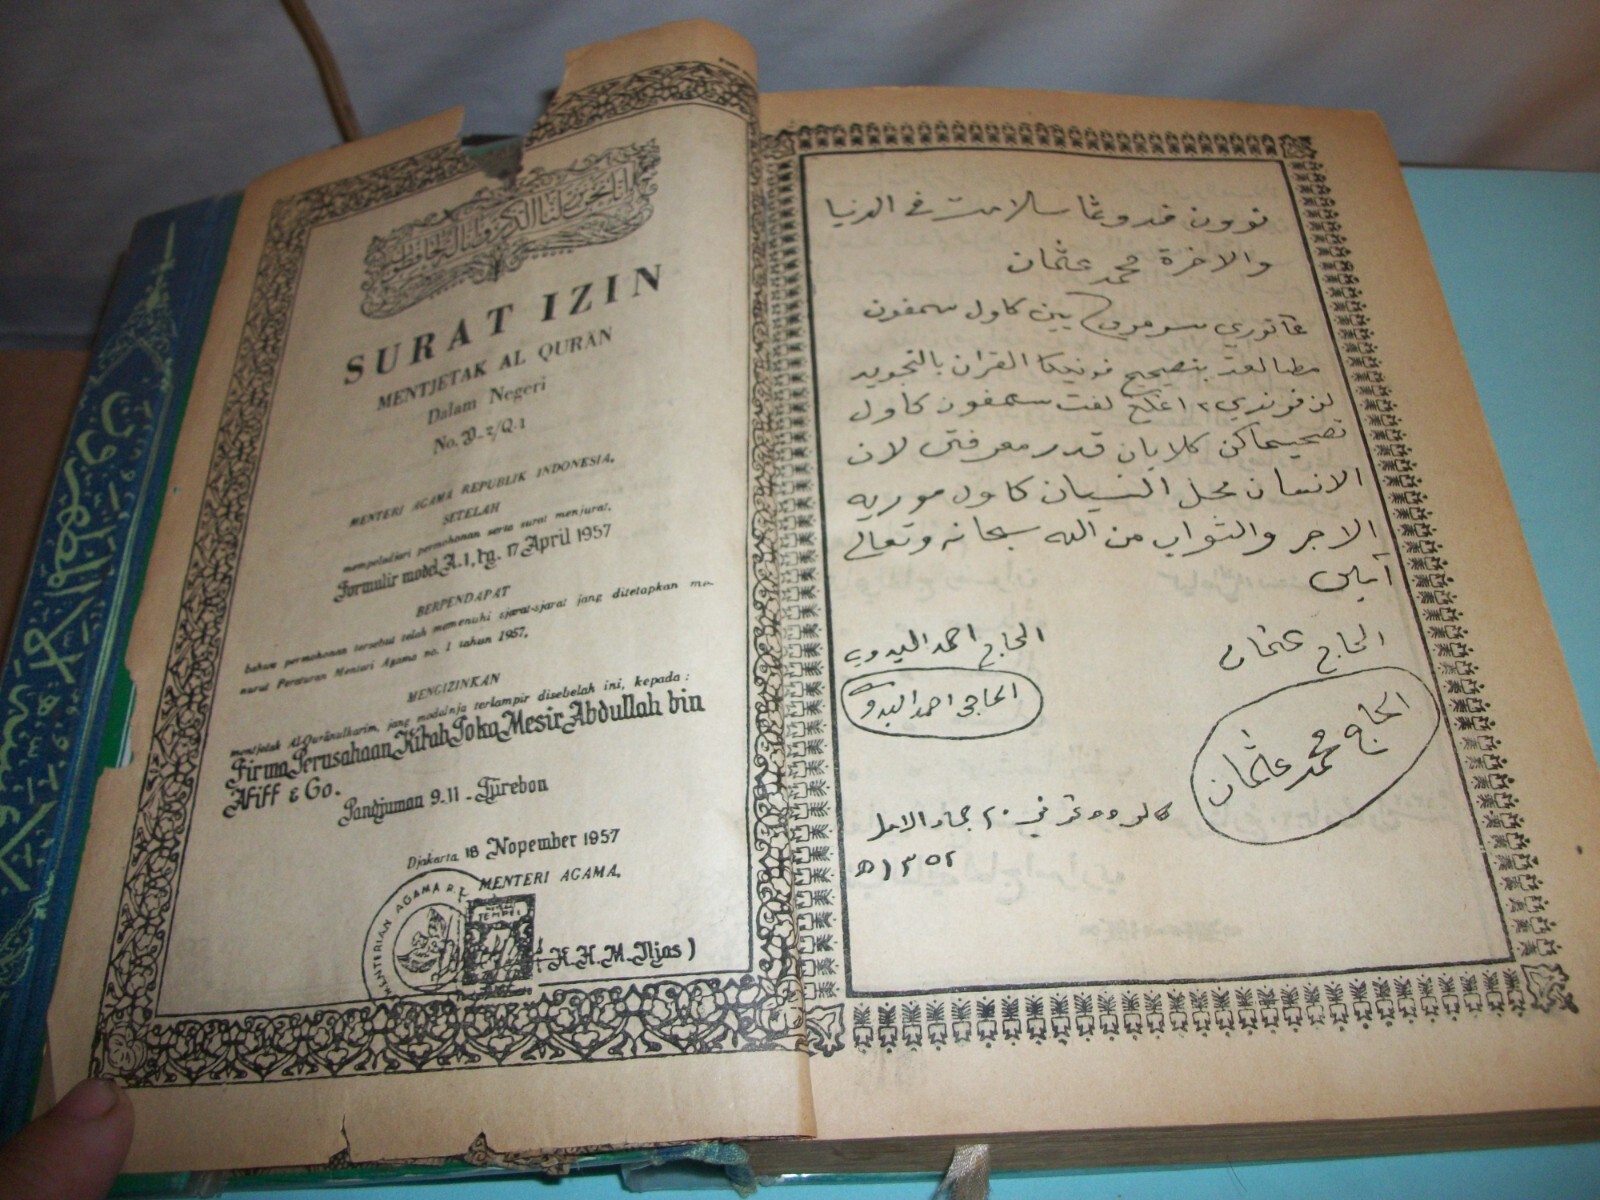 انا نحن نزلنا الذكر وانا له لحافظون
SURAT IZIN
MENTJETAK AL QURÄN
Dalam Negeri
No. D-2/Q-1
MENTERI AGAMA REPUBLIK INDONESIA.
SETELAH
mempeladjari permohonan serta surat menjurat.
Formulir model A-1, tg. 17 April 1957
BERPENDAPAT
bahwa permohonan tersebut telah memenuhi sjarat-sjarat jang ditetapkan me-
nurut Peraturan Menteri Agama no. 1 tahun 1957.
MENGIZINKAN
mentjetak Al-Quränulkarim, jang modelnja terlampir disebelah ini, kepada :
Firma Perusahaan Kitab Toko Mesir Abdullah bin
Afiff & Co.
Pandjuman 9-11 - Tjirebon
Djakarta 18 Nopember 1957
MENTERI AGAMA.
KEMENTERIAN AGAMA R.I.
TEMPEL
( K. H. M. Iljas )
سلامت في الدنيا
والاخرة محمد عثمان
كاول سمفون
القران بالتجويد
سمفون كاول
قدر معرفتي لان
الانسان محل النسيان كاول
الاجر والثواب من الله سبحانه وتعالى
آمين
الحاج عثمان
الحاج احمد البدوي
الحاج محمد عثمان
الحاجي احمد البدوي
في ٢٠ جماد الاول
١٣٥٢ ه